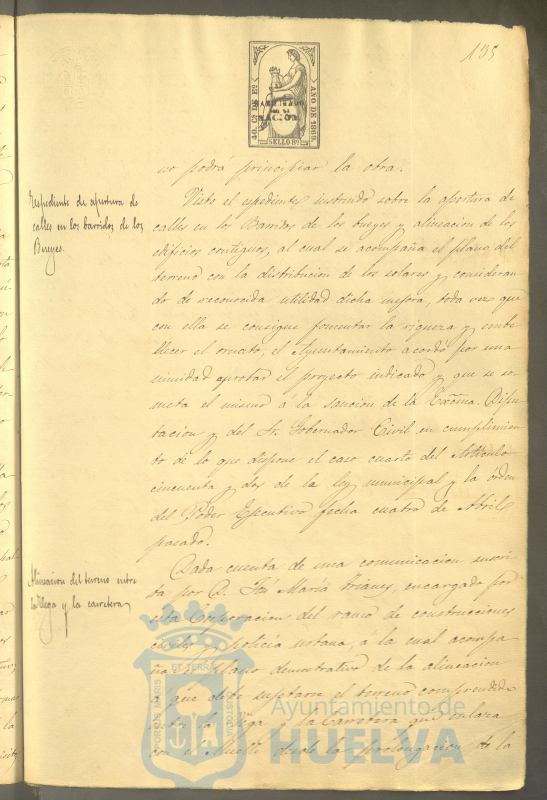 135
40. Cs DE Eo.
AÑO DE 1869.
HABILITADO
POR LA
NACION.
SELLO 9º
no podrá principiar la obra.
Espediente de apertura de
calles en los barridos de los
Bueyes.
Visto el espediente instruido sobre la apertura de
calles en los Barridos de los bueyes y alineacion de los
edificios contiguos, al cual se acompaña el plano del
terreno con la distribucion de los solares y consideran
do de reconocida utilidad dicha mejora, toda vez que
con ella se consigue fomentar la riqueza y embe
llecer el ornato, el Ayuntamiento acordó por una
nimidad aprobar el proyecto indicado y que se so
meta el mismo á la sancion de la Exma. Dipu
tacion y del Sr. Gobernador Civil en cumplimien
to de lo que dispone el caso cuarto del Artículo
cincuenta y dos de la ley municipal y la órden
del Poder Ejecutivo fecha cuatro de Abril
pasado.
Alineacion del terreno entre
la Vega y la carretera
Dada cuenta de una comunicacion suscri
ta por D. José María Brianes, encargado por
esta Corporacion del ramo de construcciones
civiles y policía urbana, á la cual acompa
ña plano demostrativo de la alineacion
á que debe sujetarse el terreno comprendido
entre la Vega y la Carretera que enlaza
con el Muelle desde la prolongacion de la
PORTUS MARIS
ET TERRÆ
CUSTODIA
Ayuntamiento de
HUELVA